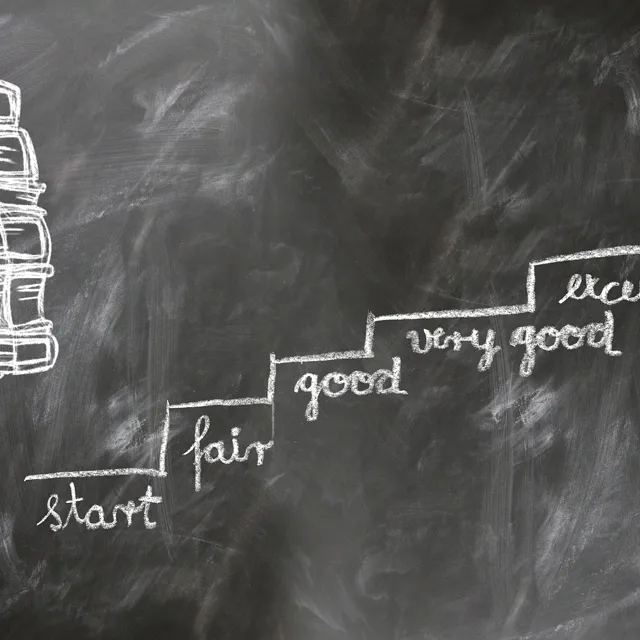 start
fair
good
very good